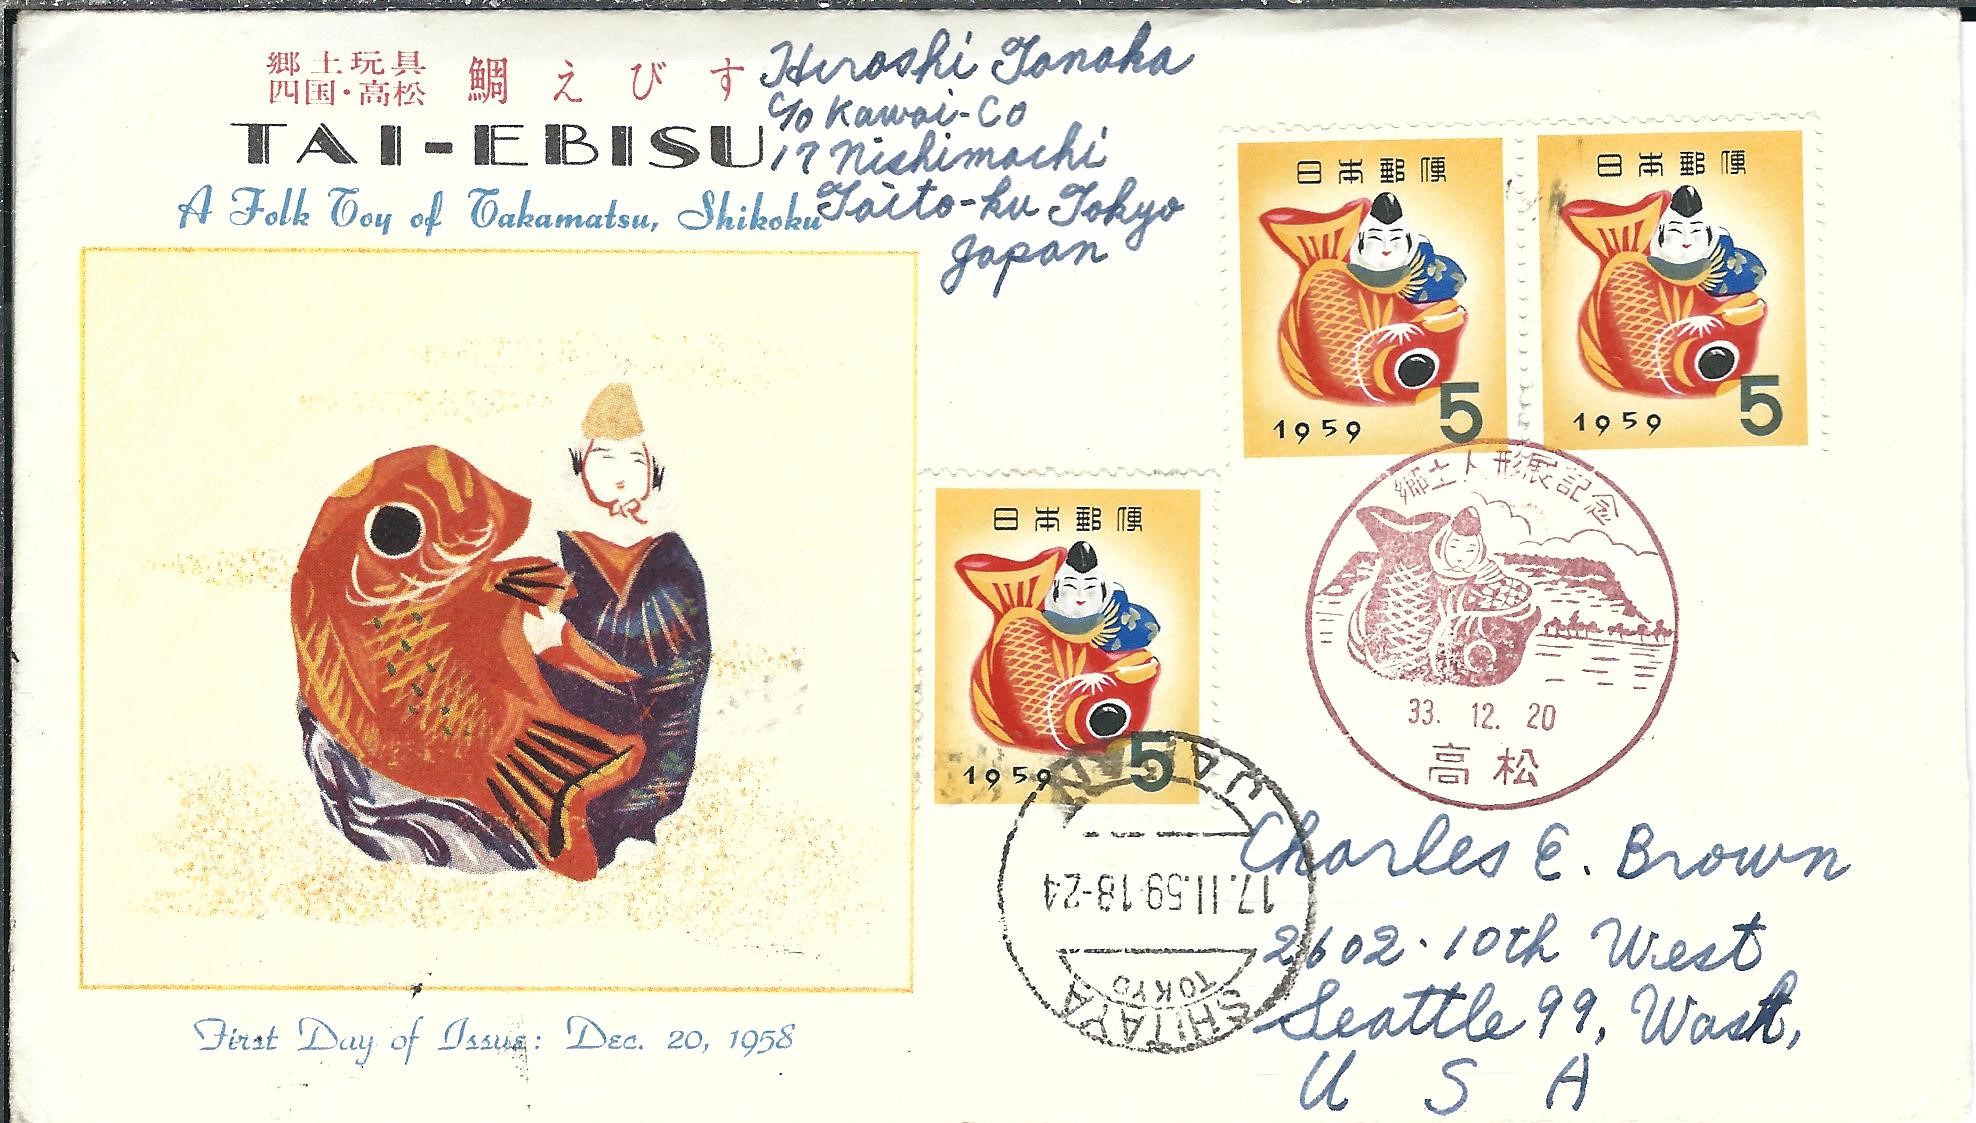 郷土玩具
四国・高松
鯛えびす
TAI-EBISU
A Folk Toy of Takamatsu, Shikoku
Hiroshi Tanaka
c/o Kawai-Co
17 Nishimachi
Taito-ku Tokyo
Japan
日本郵便
1959
5
日本郵便
1959
5
日本郵便
1959
5
郷土人形展記念
33. 12. 20
高松
JAPAN
17.11.59.18-24
SHITAYA
TOKYO
Charles E. Brown
2602·10th West
Seattle 99, Wash,
U S A
First Day of Issue: Dec. 20, 1958